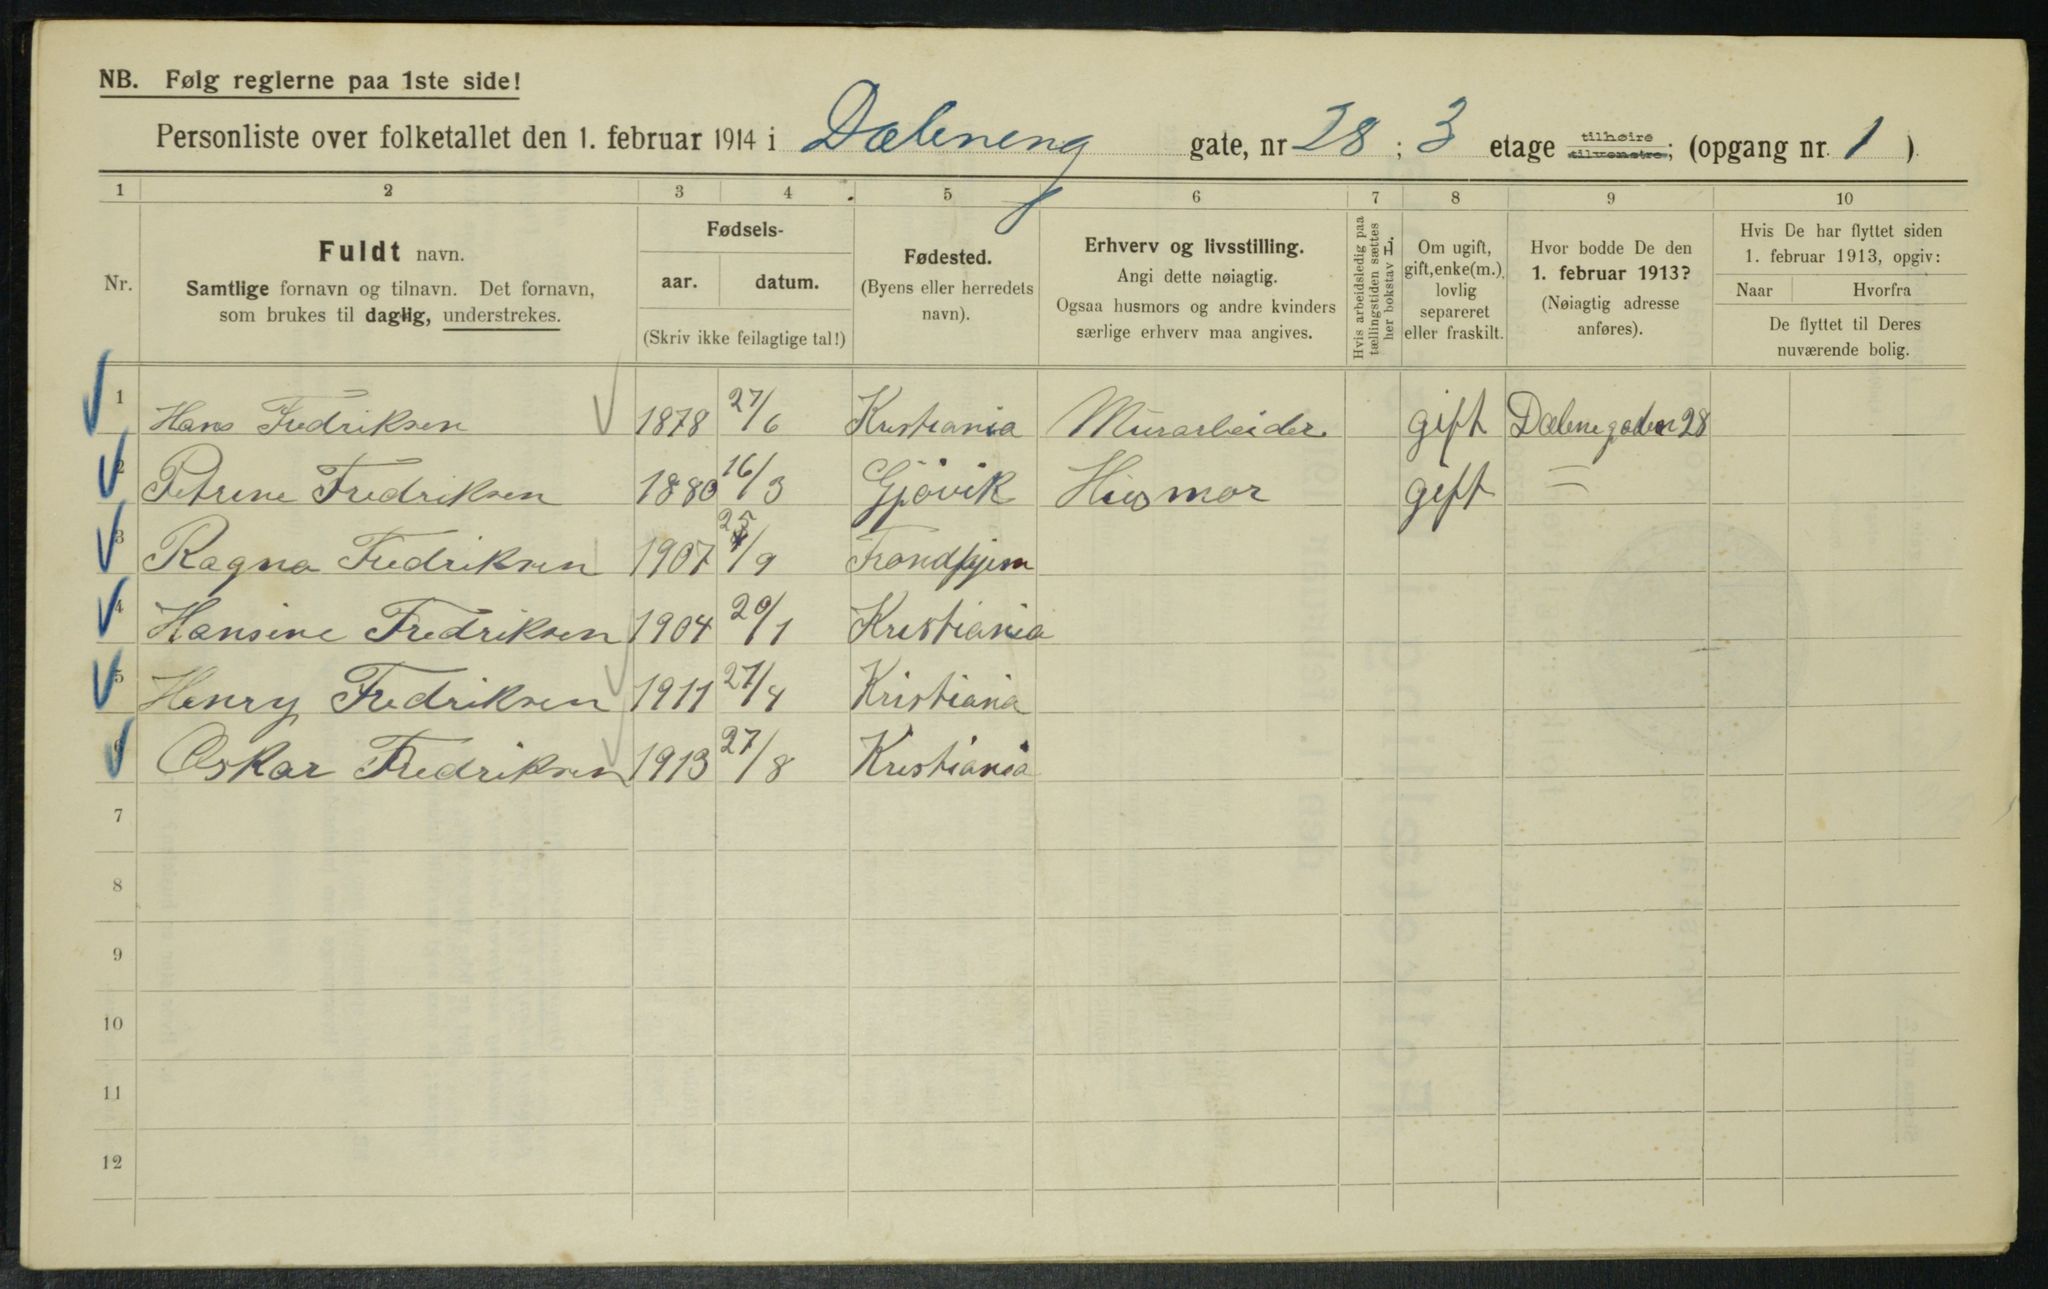 NB. Følg reglerne paa 1ste side!
Personliste over folketallet den 1. februar 1914 i Dæleneng gate, nr 28; 3 etage tilhøire tilvenstre; (opgang nr. 1)
1 2 3 4 5 6 7 8 9 10
Nr.
Fuldt navn.
Samtlige fornavn og tilnavn. Det fornavn,
som brukes til daglig, understrekes.
Fødsels-
aar. datum.
(Skriv ikke feilagtige tal!)
Fødested.
(Byens eller herredets
navn).
Erhverv og livsstilling.
Angi dette nøiagtig.
Ogsaa husmors og andre kvinders
særlige erhverv maa angives.
Hvis arbeidsledig paa
tællingstiden sættes
her bokstav L.
Om ugift,
gift, enke(m.),
lovlig
separeret
eller fraskilt.
Hvor bodde De den
1. februar 1913?
(Nøiagtig adresse
anføres).
Hvis De har flyttet siden
1. februar 1913, opgiv:
Naar Hvorfra
De flyttet til Deres
nuværende bolig.
1 Hans Fredriksen 1878 27/6 Kristiania Murarbeider gift Dælenegaden 28
2 Petrine Fredriksen 1880 16/3 Gjøvik Husmor gift =
3 Ragna Fredriksen 1907 25/9 Trondhjem
4 Hansine Fredriksen 1904 20/1 Kristiania
5 Henry Fredriksen 1911 27/4 Kristiania
6 Oskar Fredriksen 1913 27/8 Kristiania
7
8
9
10
11
12